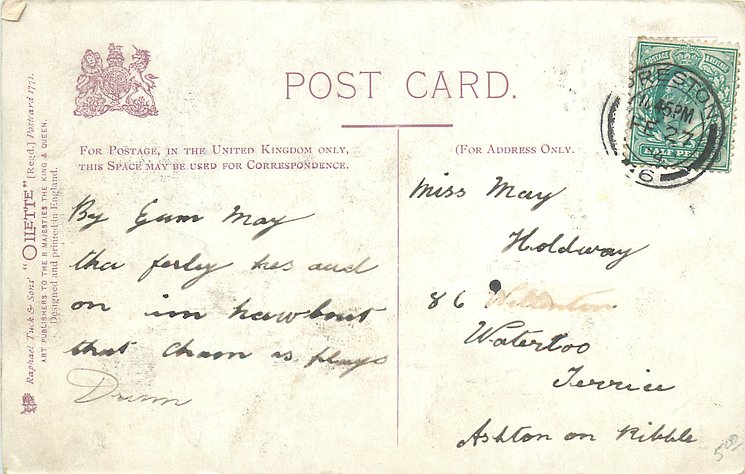 POST CARD.
FOR POSTAGE, IN THE UNITED KINGDOM ONLY,
THIS SPACE MAY BE USED FOR CORRESPONDENCE.
(FOR ADDRESS ONLY.
Raphael Tuck & Sons' "OILETTE" [Regd.] Postcard 1771.
ART PUBLISHERS TO THEIR MAJESTIES THE KING & QUEEN.
Designed and printed in England.
PRESTON
45PM
FE 27
HALF PENNY
By Gum May
tha ferley has and
on im
that is plays
Drum
Miss May
Holdway
86
Waterloo
Terrice
Ashton on Ribble